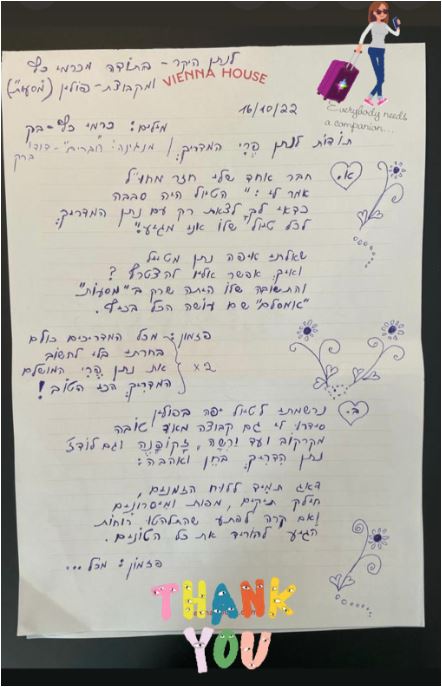 לנתן היקר - בתודה מכרמי כץ
VIENNA HOUSE
ומקבוצת-פולין (מסעות")
Everybody needs
a companion...
16/10/22
מילים: כרמי כץ-בק
תודות לנתן פֶרִי המדריך / מנגינה: "חברים" - דודו
ברק
א.
חבר אחד שלי חזר מחו"ל
אמר לי: "הטיול היה סבבה
כדאי לך לצאת רק עם נתן המדריך
לכל טיול שלו אני מגיע!"
שאלתי איפה נתן מטייל
ואיך אפשר אליו להצטרף?
והתשובה שלו היתה שרק ב"מסעות"
שם עושה הכל בכיף.
פזמון: מכל המדריכים כולם
בחרתי בלי לחשוב
x2
את נתן פֶרִי המושלם
המדריך הכי הטוב!
ב.
נרשמתי לטיול יפה בפולין
סידרו לי גם קבוצה מאד טובה
מקרקוב ועד ורשה, זָקוֹפָּנֶה וגם לודז'
נתן הִדְרִיךְ בְּחֵן ואהבה:
דאג תמיד ללוח הזמנים,
חילק תיקים, מפות ומיסרונים
ואם קרה לפתע שהתלהטו רוחות
הגיע להוריד את כל הטונים.
פזמון: מכל...
THANK
YOU